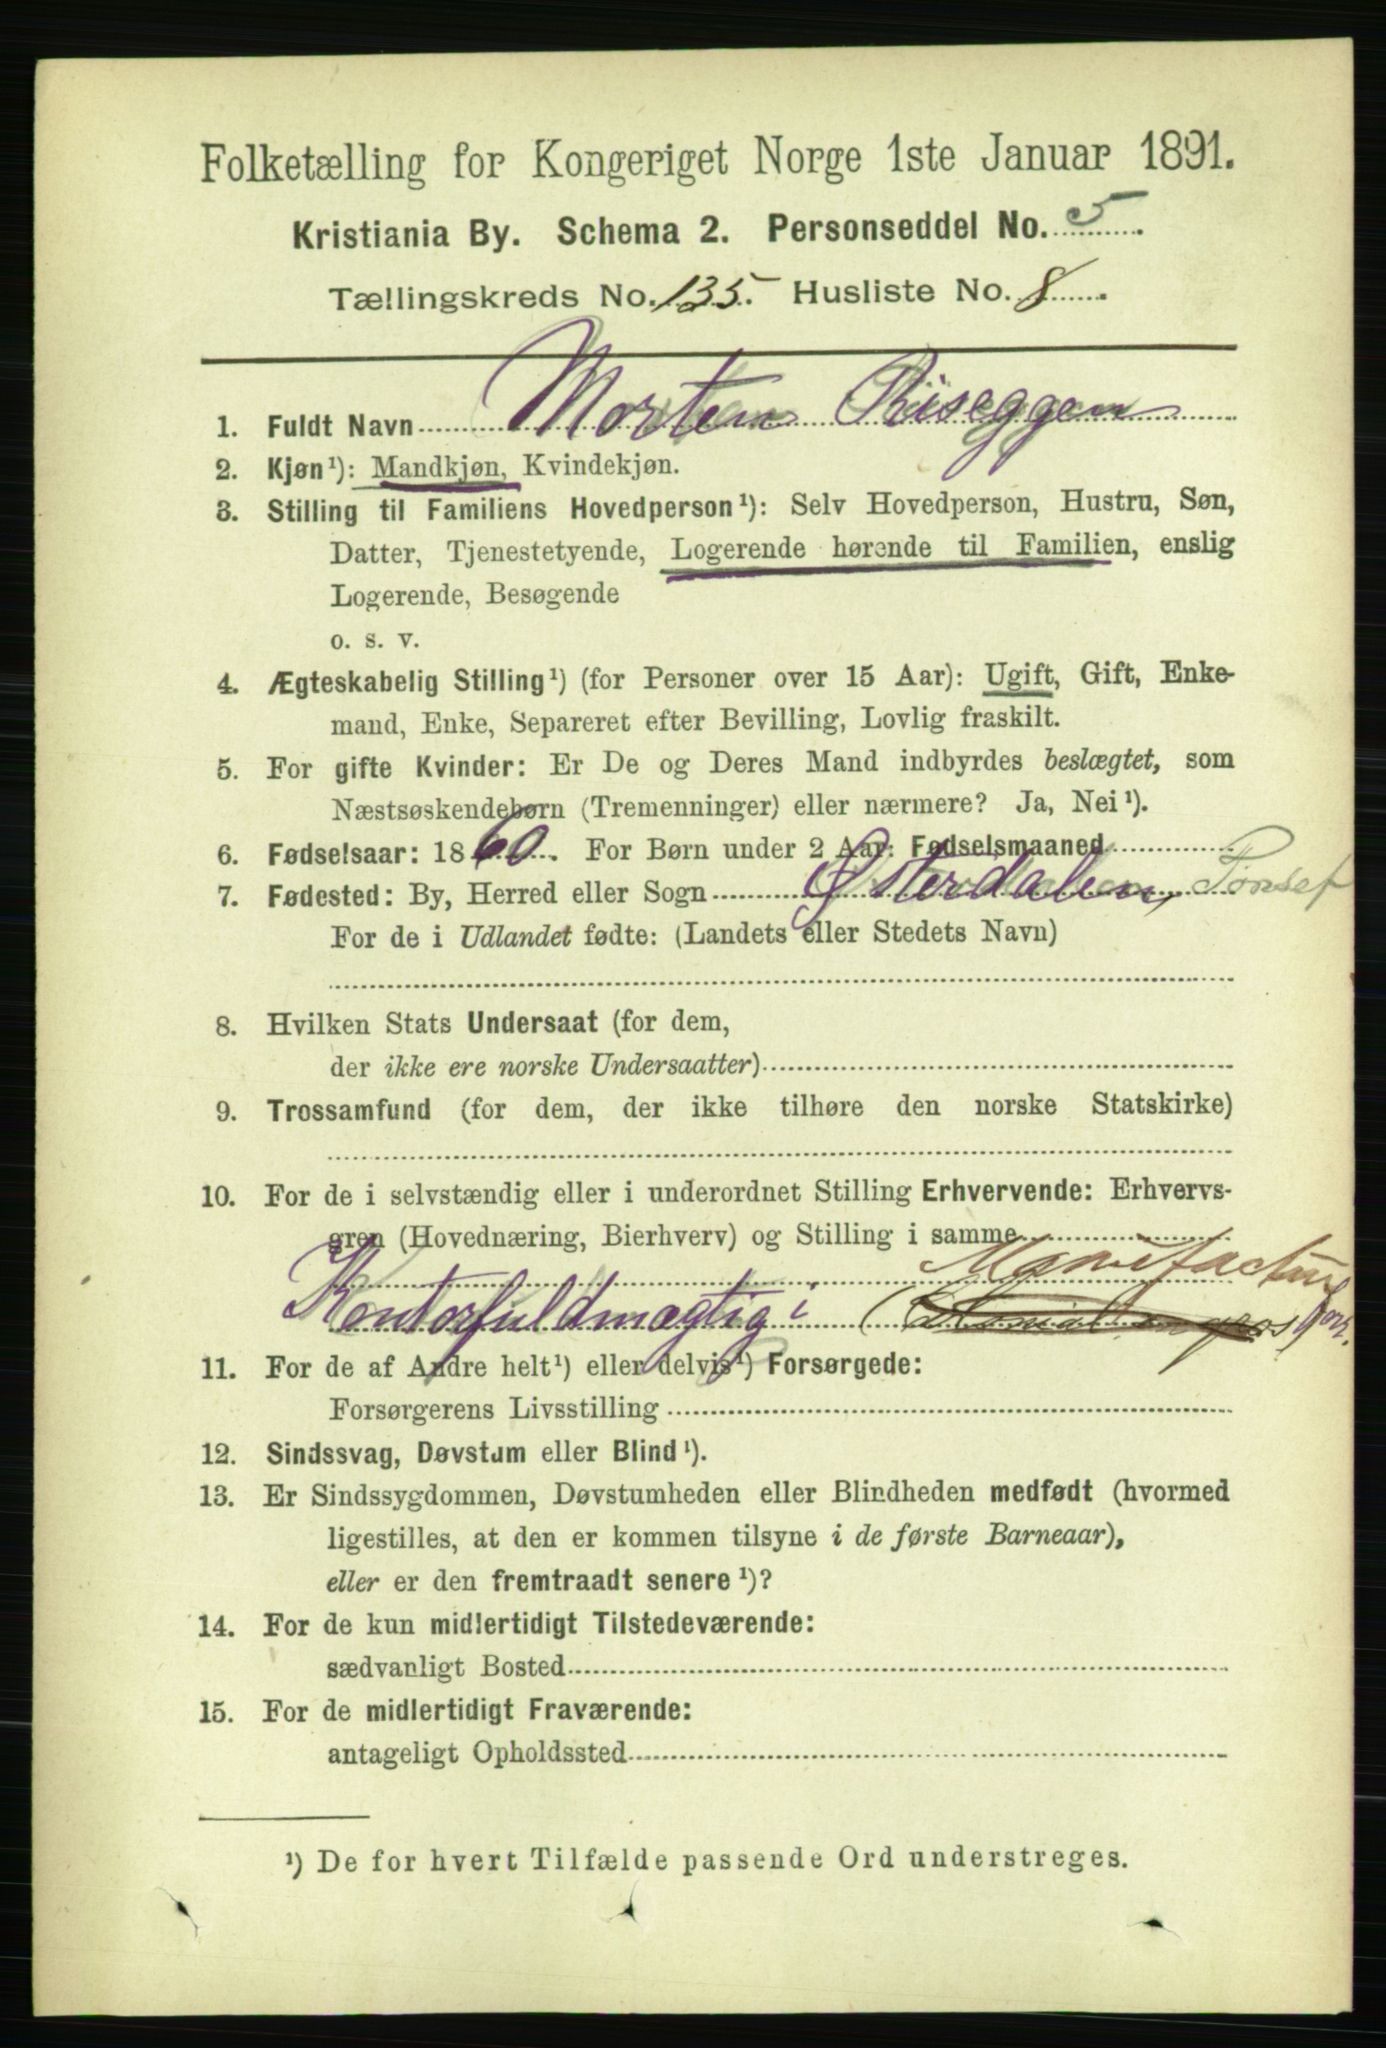 Folketælling for Kongeriget Norge 1ste Januar 1891.
Kristiania By. Schema 2. Personseddel No. 5
Tællingskreds No. 135. Husliste No. 8
1. Fuldt Navn Morten Riseggen
2. Kjøn¹): Mandkjøn, Kvindekjøn.
3. Stilling til Familiens Hovedperson¹): Selv Hovedperson, Hustru, Søn,
Datter, Tjenestetyende, Logerende hørende til Familien, enslig
Logerende, Besøgende
o. s. v.
4. Ægteskabelig Stilling¹) (for Personer over 15 Aar): Ugift, Gift, Enke-
mand, Enke, Separeret efter Bevilling, Lovlig fraskilt.
5. For gifte Kvinder: Er De og Deres Mand indbyrdes beslægtet, som
Næstsøskendebørn (Tremenninger) eller nærmere? Ja, Nei¹).
6. Fødselsaar: 1860. For Børn under 2 Aar: Fødselsmaaned
7. Fødested: By, Herred eller Sogn Østerdalen, Tonset
For de i Udlandet fødte: (Landets eller Stedets Navn)
8. Hvilken Stats Undersaat (for dem,
der ikke ere norske Undersaatter)
9. Trossamfund (for dem, der ikke tilhøre den norske Statskirke)
10. For de i selvstændig eller i underordnet Stilling Erhvervende: Erhvervs-
gren (Hovednæring, Bierhverv) og Stilling i samme
Manufactur
Kontorfuldmægtig i
11. For de af Andre helt¹) eller delvis¹) Forsørgede:
Forsørgerens Livsstilling
12. Sindssvag, Døvstum eller Blind¹).
13. Er Sindssygdommen, Døvstumheden eller Blindheden medfødt (hvormed
ligestilles, at den er kommen tilsyne i de første Barneaar),
eller er den fremtraadt senere¹)?
14. For de kun midlertidigt Tilstedeværende:
sædvanligt Bosted
15. For de midlertidigt Fraværende:
antageligt Opholdssted
¹) De for hvert Tilfælde passende Ord understreges.